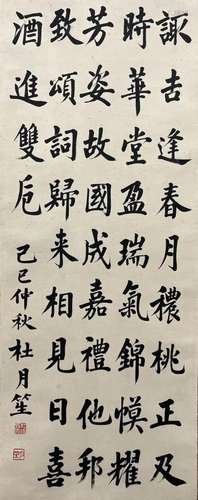 諏吉逢春月穠桃正及
時華堂盈瑞氣錦幙耀
芳姿故國成嘉禮他邦
致頌詞歸来相見日喜
酒進雙卮
己巳仲秋
杜月笙